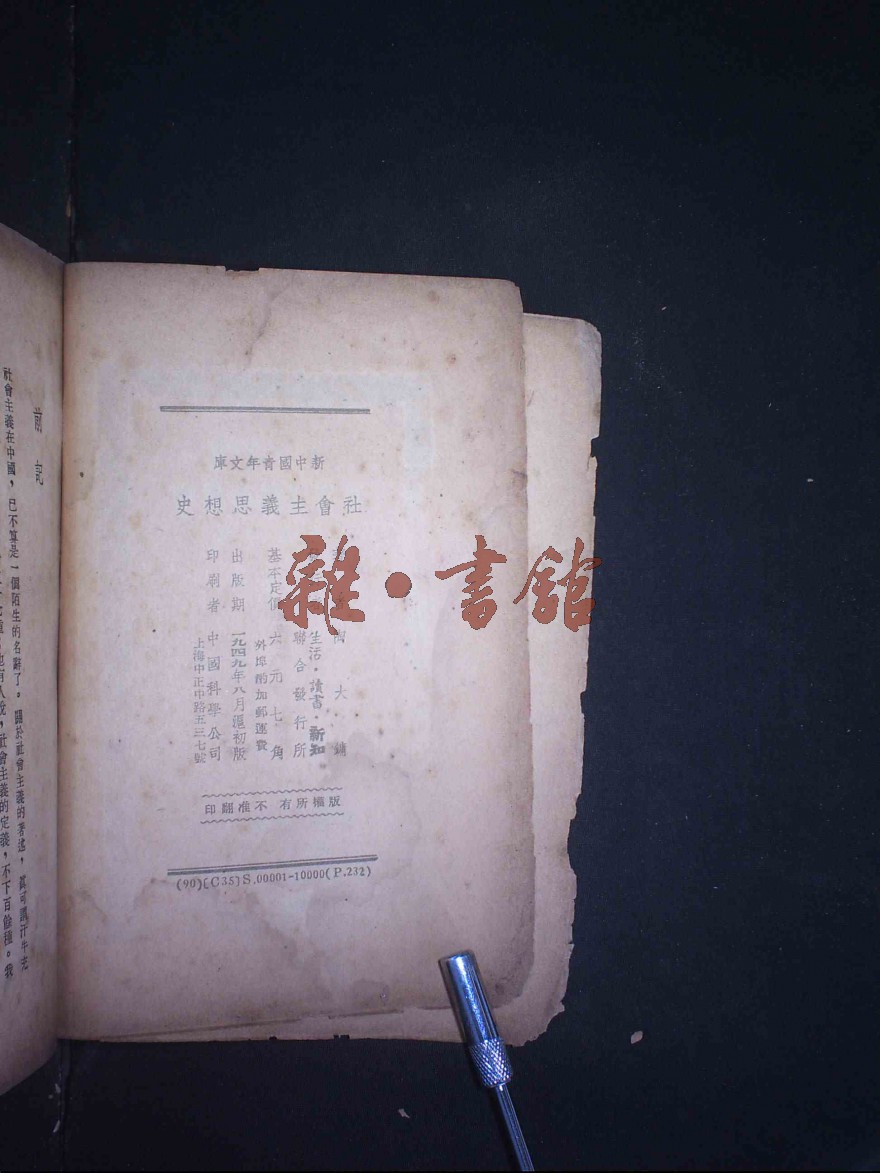 新中國青年文庫
社會主義思想史
陶大鏞
生活·讀書·新知
聯合發行所
基本定價 六元七角
外埠酌加郵運費
出版期 一九四九年八月滬初版
印刷者 中國科學公司
上海中正中路五三七號
版權所有 不准翻印
(90)[C35]S.00001-10000(P.232)
前記
社會主義在中國，已不算是一個陌生的名辭了。關於社會主義的著述，眞可謂汗牛充
也有人說，社會主義的定義，不下百餘種。我
雜·書館